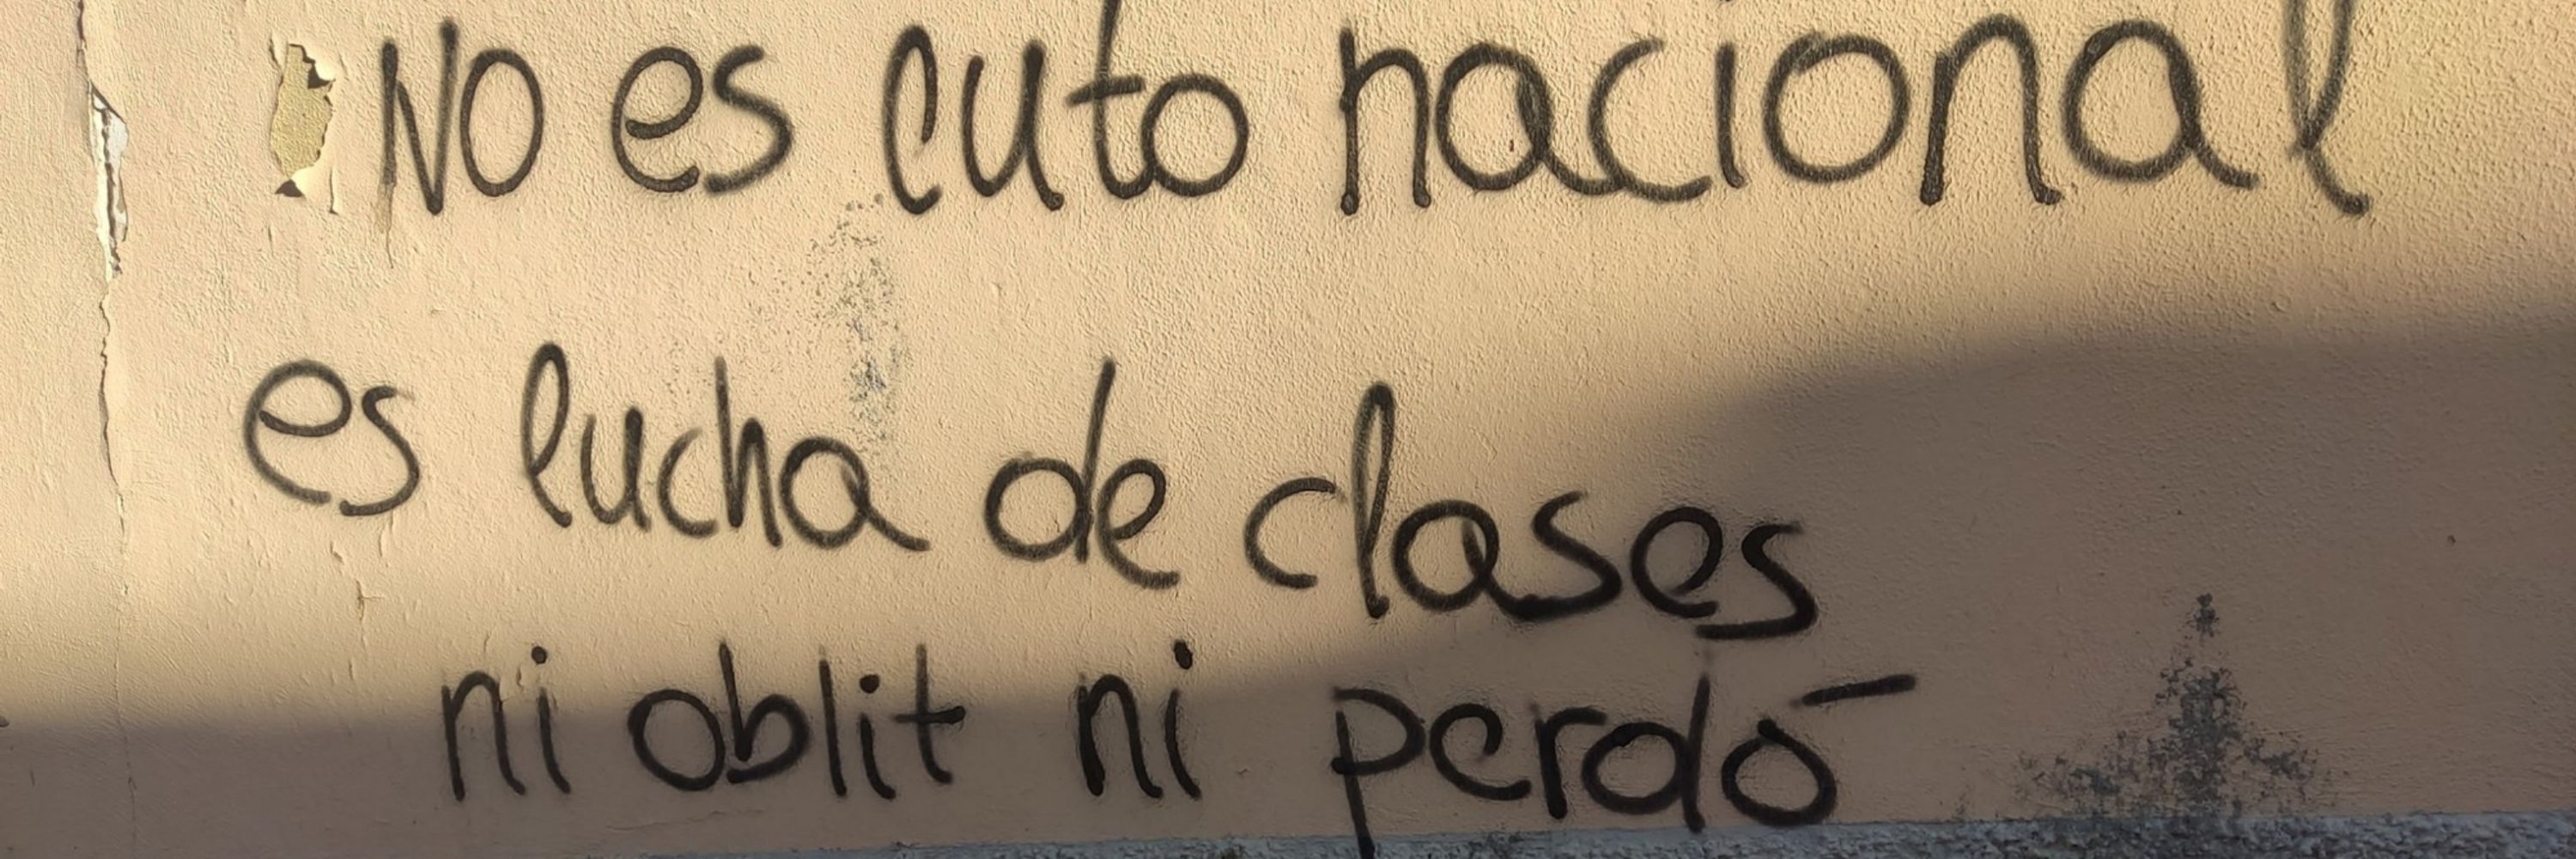 NO es cuto nacional
es lucha de clases
ni oblit ni perdó